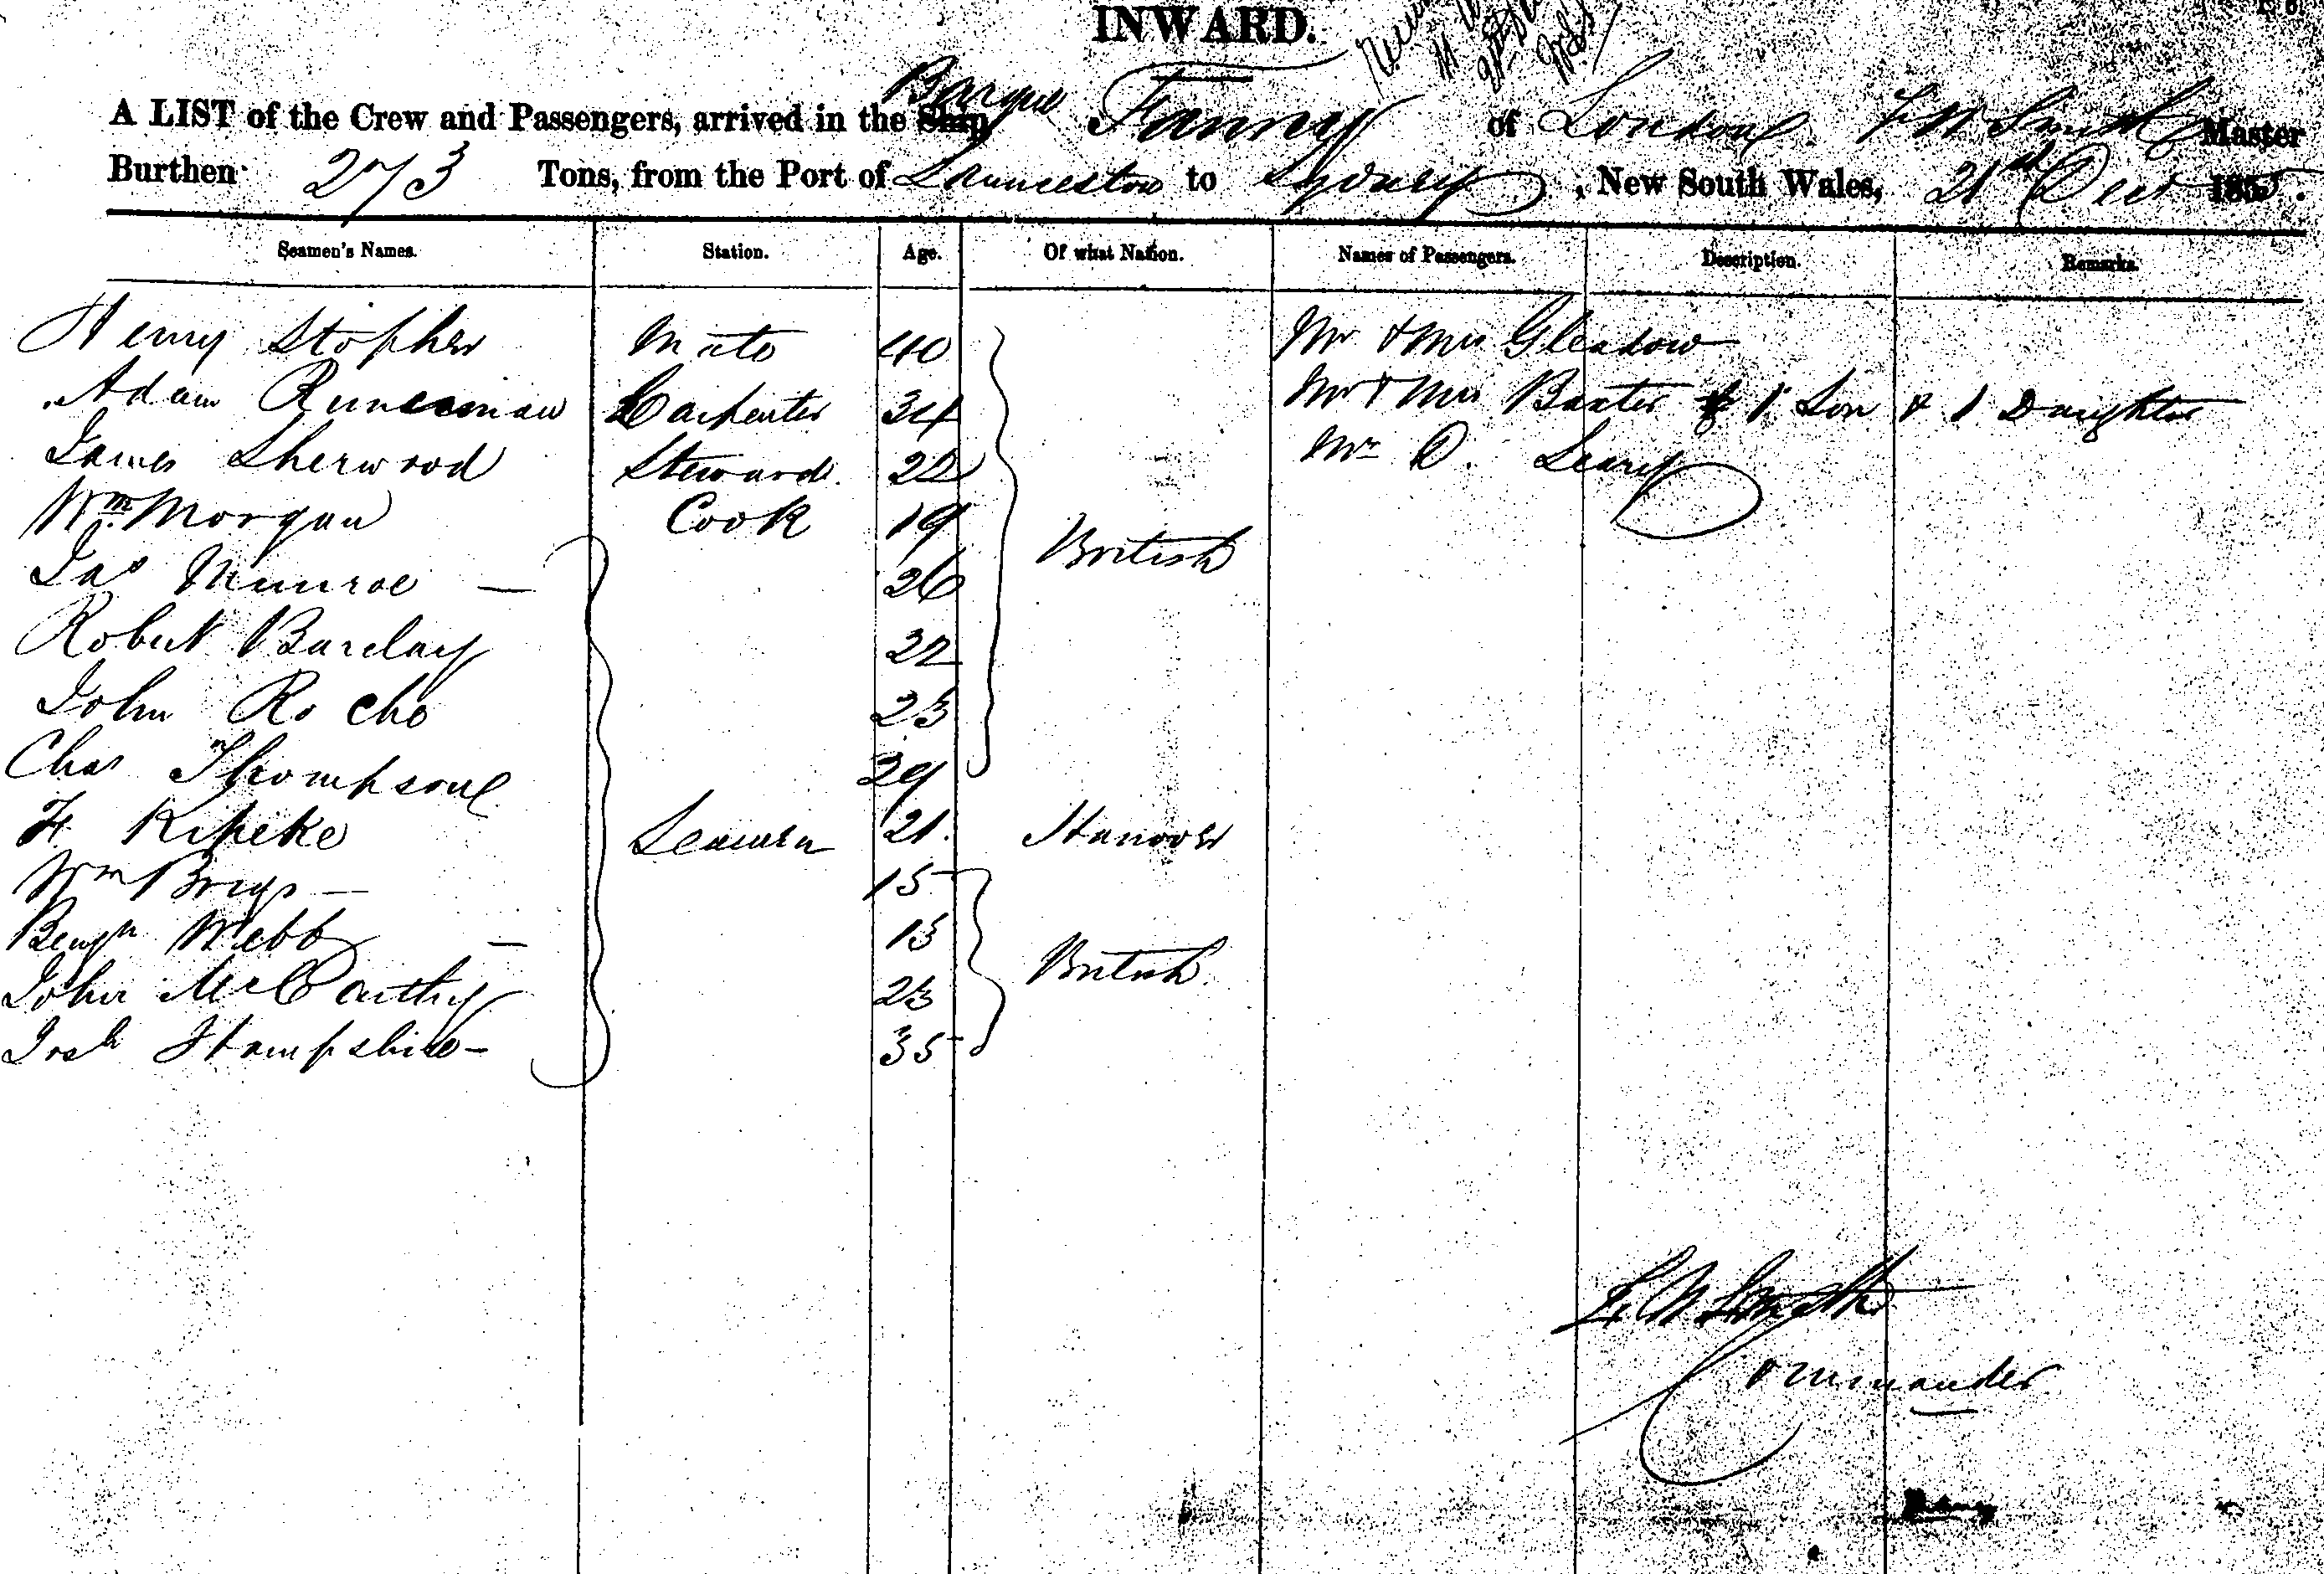 INWARD.
A LIST of the Crew and Passengers, arrived in the Ship Barque Fanny of London F W Smith Master
Burthen 273 Tons, from the Port of Launceston to Sydney, New South Wales, 21st Decr 185
Seamen's Names. Station. Age. Of what Nation. Names of Passengers. Description. Remarks.
Henry Stopher Mate 40 Mr & Mrs Gleadow
Adam Runciman Carpenter 34 Mr & Mrs Baxter & 1 Son & 1 Daughter
James Sherwood Steward 22 Mr D. Leary
Wm Morgan Cook 19
British
Jas Munroe 26
Robert Barclay 22
John Roche 23
Chas Thompson 29
H Kipeke Seamen 21. Hanover
Wm Brigs 15
Benjn Webb 15
British
John McCarthy 23
Josh Hampshire 35
F. W Smith
Commander